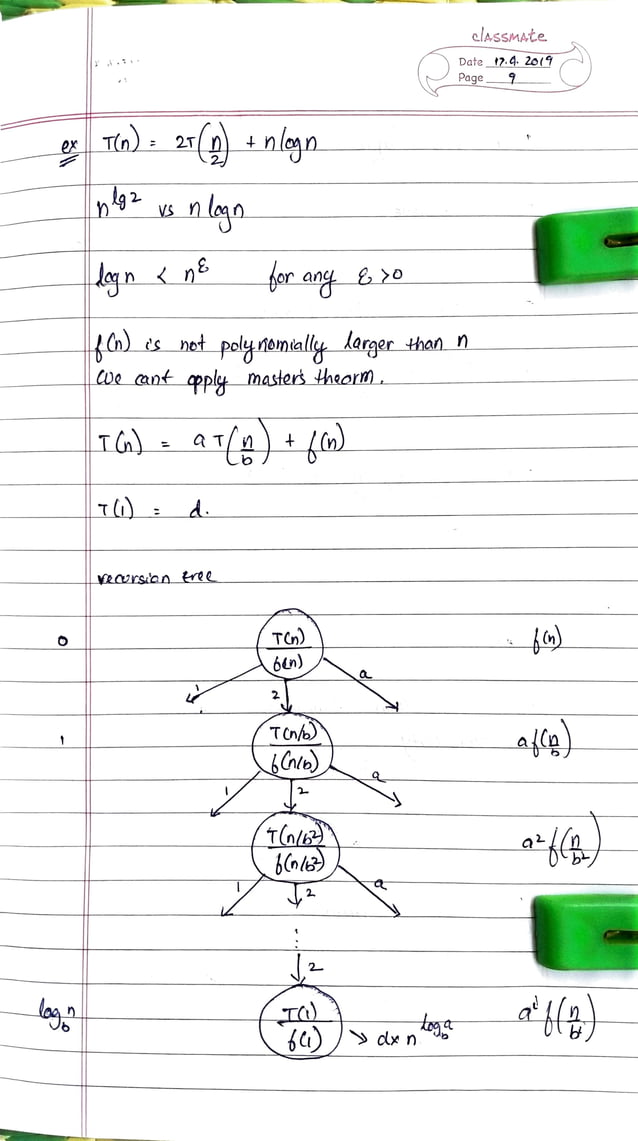 classmate
Date 17.4.2019
Page 9
ex T(n) = 2T(n/2) + nlogn
n^lg2 vs nlogn
logn < n^ε for any ε>0
f(n) is not polynomially larger than n
We cant apply master's theorm.
T(n) = aT(n/b) + f(n)
T(1) = d.
recursion tree
0 T(n) f(n) f(n)
1 2 a
1 T(n/b) f(n/b) af(n/b)
1 2 a
T(n/b²) f(n/b²) a²f(n/b²)
1 2 a
2
log_b n T(1) f(1) → d×n^log_b a a^i f(n/b^i)